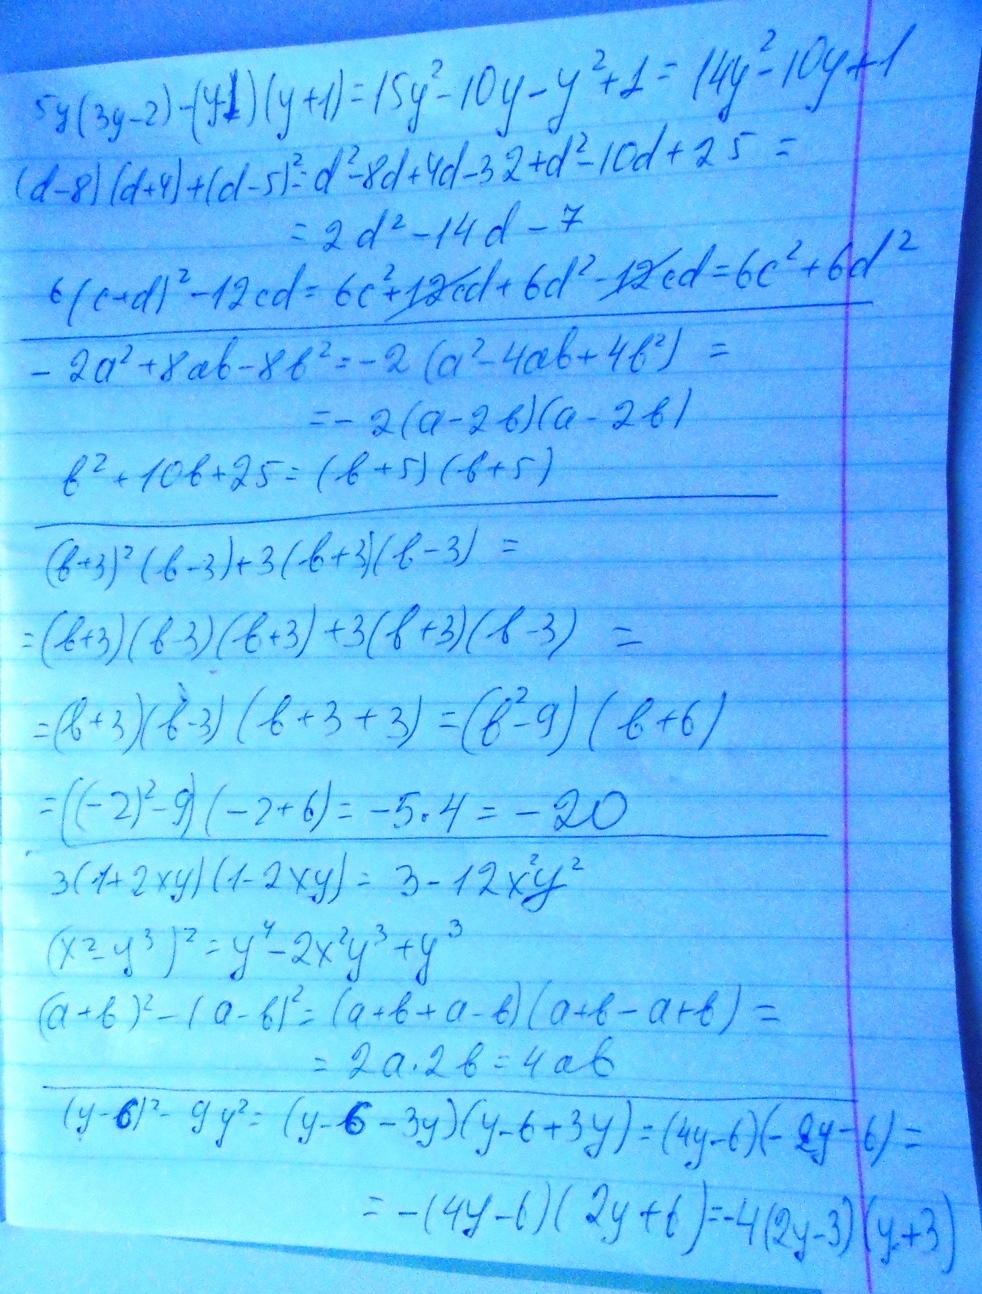 5y(3y-2)-(y-1)(y+1)=15y²-10y-y²+1=14y²-10y+1
(d-8)(d+4)+(d-5)²=d²-8d+4d-32+d²-10d+25=
=2d²-14d-7
6(c+d)²-12cd=6c²+12cd+6d²-12cd=6c²+6d²
-2a²+8ab-8b²=-2(a²-4ab+4b²)=
=-2(a-2b)(a-2b)
b²+10b+25=(b+5)(b+5)
(b+3)²(b-3)+3(b+3)(b-3)=
=(b+3)(b-3)(b+3)+3(b+3)(b-3)=
=(b+3)(b-3)(b+3+3)=(b²-9)(b+6)
=((-2)²-9)(-2+6)=-5·4=-20
3(1+2xy)(1-2xy)=3-12x²y²
(x²-y³)²=y⁴-2x²y³+y³
(a+b)²-(a-b)²=(a+b+a-b)(a+b-a+b)=
=2a·2b=4ab
(y-6)²-9y²=(y-6-3y)(y-6+3y)=(4y-6)(-2y-6)=
=-(4y-6)(2y+6)=-4(2y-3)(y+3)